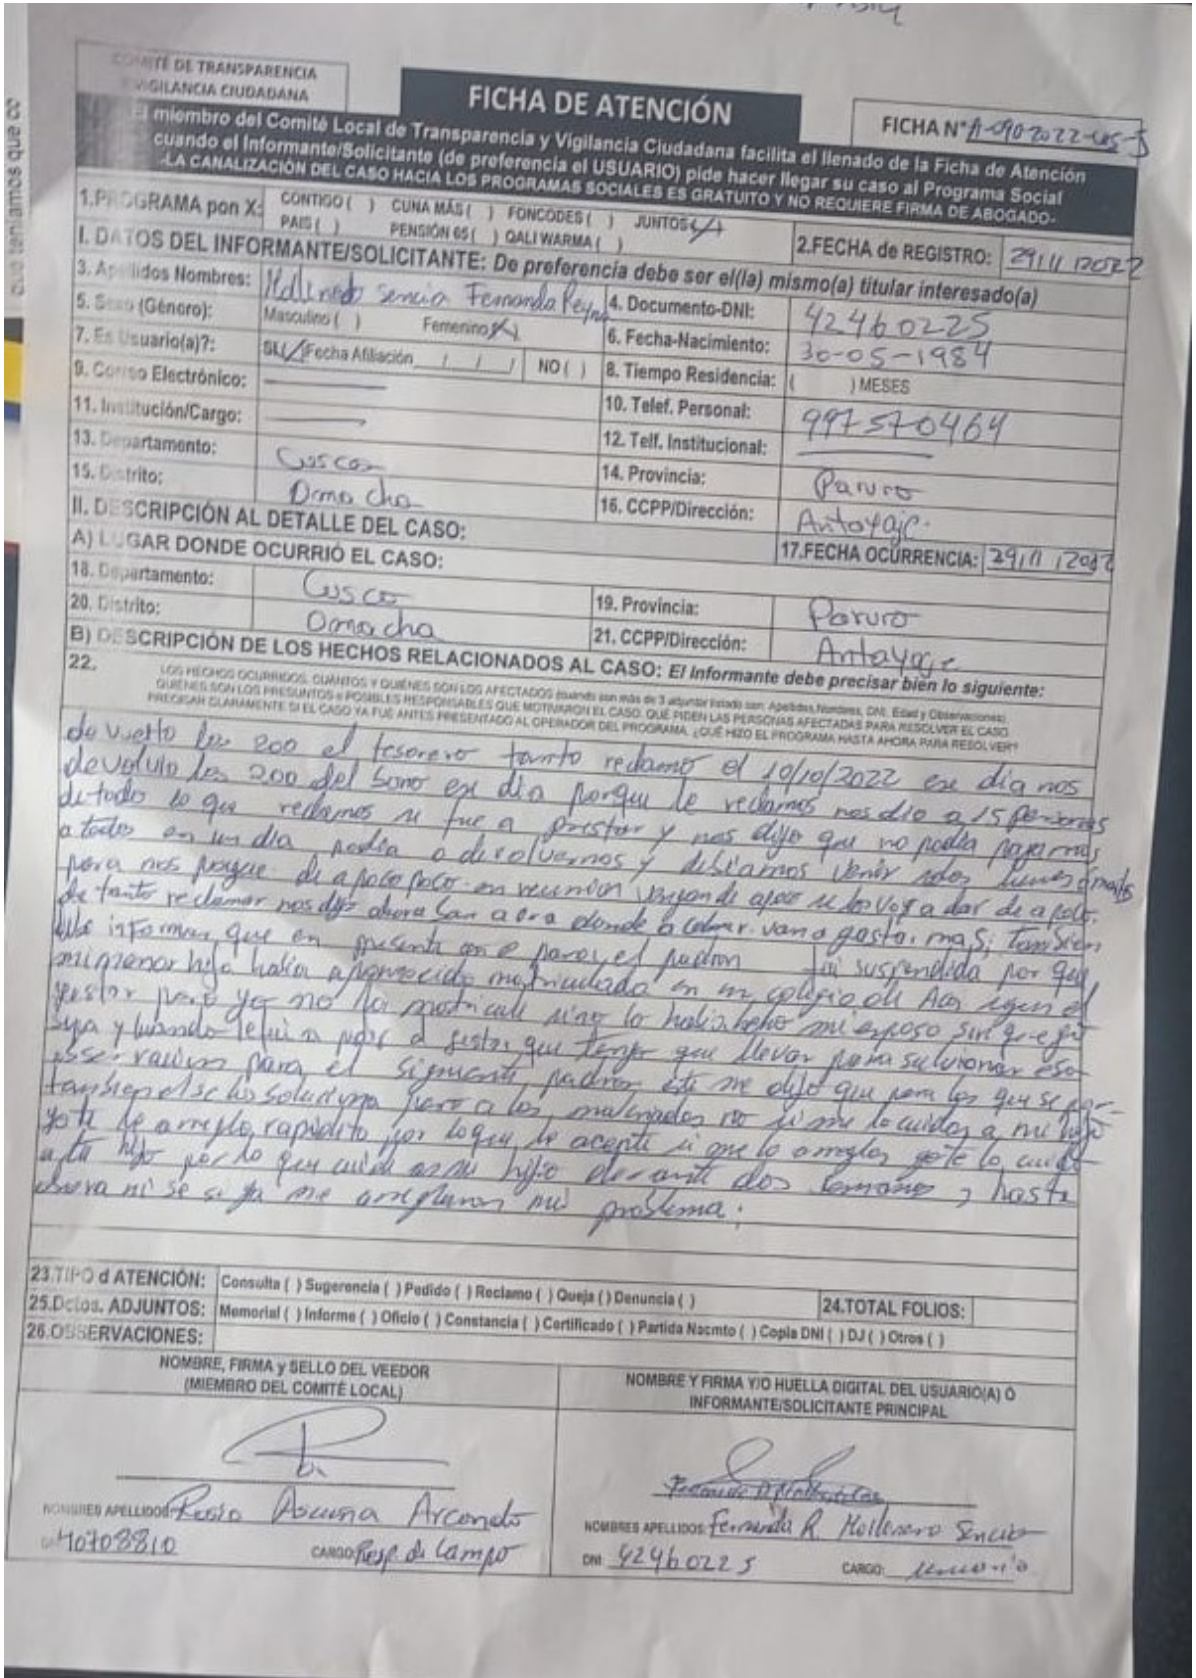 COMITÉ DE TRANSPARENCIA
VIGILANCIA CIUDADANA
FICHA DE ATENCIÓN
FICHA N° A-090-2022-
El miembro del Comité Local de Transparencia y Vigilancia Ciudadana facilita el llenado de la Ficha de Atención
cuando el Informante/Solicitante (de preferencia el USUARIO) pide hacer llegar su caso al Programa Social
-LA CANALIZACIÓN DEL CASO HACIA LOS PROGRAMAS SOCIALES ES GRATUITO Y NO REQUIERE FIRMA DE ABOGADO-
1.PROGRAMA pon X: CONTIGO ( ) CUNA MÁS ( ) FONCODES ( ) JUNTOS (X)
PAIS ( ) PENSIÓN 65 ( ) QALI WARMA ( )
2.FECHA de REGISTRO: 29/11/2022
I. DATOS DEL INFORMANTE/SOLICITANTE: De preferencia debe ser el(la) mismo(a) titular interesado(a)
3. Apellidos Nombres: Sencia Fernanda Reyna 4. Documento-DNI: 42460225
5. Sexo (Género): Masculino ( ) Femenino (X) 6. Fecha-Nacimiento: 30-05-1984
7. Es Usuario(a)?: SI (X) Fecha Afiliación / / / NO ( ) 8. Tiempo Residencia: ( ) MESES
9. Correo Electrónico: 10. Telef. Personal: 997570464
11. Institución/Cargo: 12. Telf. Institucional:
13. Departamento: Cusco 14. Provincia: Paruro
15. Distrito: Omacha 16. CCPP/Dirección: Antayaje
II. DESCRIPCIÓN AL DETALLE DEL CASO:
A) LUGAR DONDE OCURRIÓ EL CASO: 17.FECHA OCURRENCIA: 29/11/2022
18. Departamento: Cusco 19. Provincia: Paruro
20. Distrito: Omacha 21. CCPP/Dirección: Antayaje
B) DESCRIPCIÓN DE LOS HECHOS RELACIONADOS AL CASO: El Informante debe precisar bien lo siguiente:
22. LOS HECHOS OCURRIDOS. CUÁNTOS Y QUIÉNES SON LOS AFECTADOS (cuando son más de 3 adjuntar listado con: Apellidos, Nombres, DNI, Edad y Observaciones).
QUIÉNES SON LOS PRESUNTOS o POSIBLES RESPONSABLES QUE MOTIVARON EL CASO. QUÉ PIDEN LAS PERSONAS AFECTADAS PARA RESOLVER EL CASO.
PRECISAR CLARAMENTE SI EL CASO YA FUE ANTES PRESENTADO AL OPERADOR DEL PROGRAMA. ¿QUÉ HIZO EL PROGRAMA HASTA AHORA PARA RESOLVER?
los 200 el tesorero tanto reclamo el 10/10/2022 ese dia nos
los 200 del bono ese dia porque le reclamos nos dio a 15 personas
de todo lo que reclamos se fue a prestar y nos dijo que no podia pagarnos
a todos en un dia podia y venir
para nos pague de a poco poco en reunion de a poco se los voy a dar de a poco.
de tanto reclamar nos dijo ahora a donde a van a gastar mas; tambien
informar que en presente el padron fui suspendida por que
mi menor hija habia aparecido matriculada en un colegio de Acos segun el
gestor pero yo no la matricule sino lo habia hecho mi esposo sin que yo
sepa y cuando le fui a al gestor que tengo que llevar para solucionar esa
para el siguiente padron este me dijo que para los que se
tambien solucion pero a los no si me lo cuidas a mi hijo
yo te lo arreglo rapidito por lo que le acepte si que lo arreglas yo te lo cuido
a tu hijo por lo que cuide a su hijo durante dos semanas y hasta
ahora ni se si ya me arreglaron mi problema.
23.TIPO d ATENCIÓN: Consulta ( ) Sugerencia ( ) Pedido ( ) Reclamo ( ) Queja ( ) Denuncia ( ) 24.TOTAL FOLIOS:
25.Dctos. ADJUNTOS: Memorial ( ) Informe ( ) Oficio ( ) Constancia ( ) Certificado ( ) Partida Nacmto ( ) Copia DNI ( ) DJ ( ) Otros ( )
26.OBSERVACIONES:
NOMBRE, FIRMA y SELLO DEL VEEDOR
(MIEMBRO DEL COMITÉ LOCAL)
NOMBRE Y FIRMA Y/O HUELLA DIGITAL DEL USUARIO(A) Ó
INFORMANTE/SOLICITANTE PRINCIPAL
NOMBRES APELLIDOS: Arcondo
40708810 CARGO: Resp. de Campo
NOMBRES APELLIDOS: Fernanda R. Sencia
DNI: 42460225 CARGO: usuario